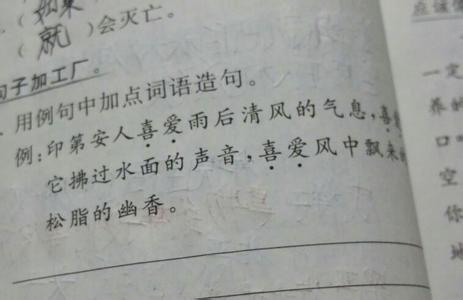 (如果
(就)会灭亡。
句子加工厂。
用例句中加点词语造句。
例:印第安人喜爱雨后清风的气息,喜
它拂过水面的声音,喜爱风中飘来
松脂的幽香。
一定
养的
口
空
你
地